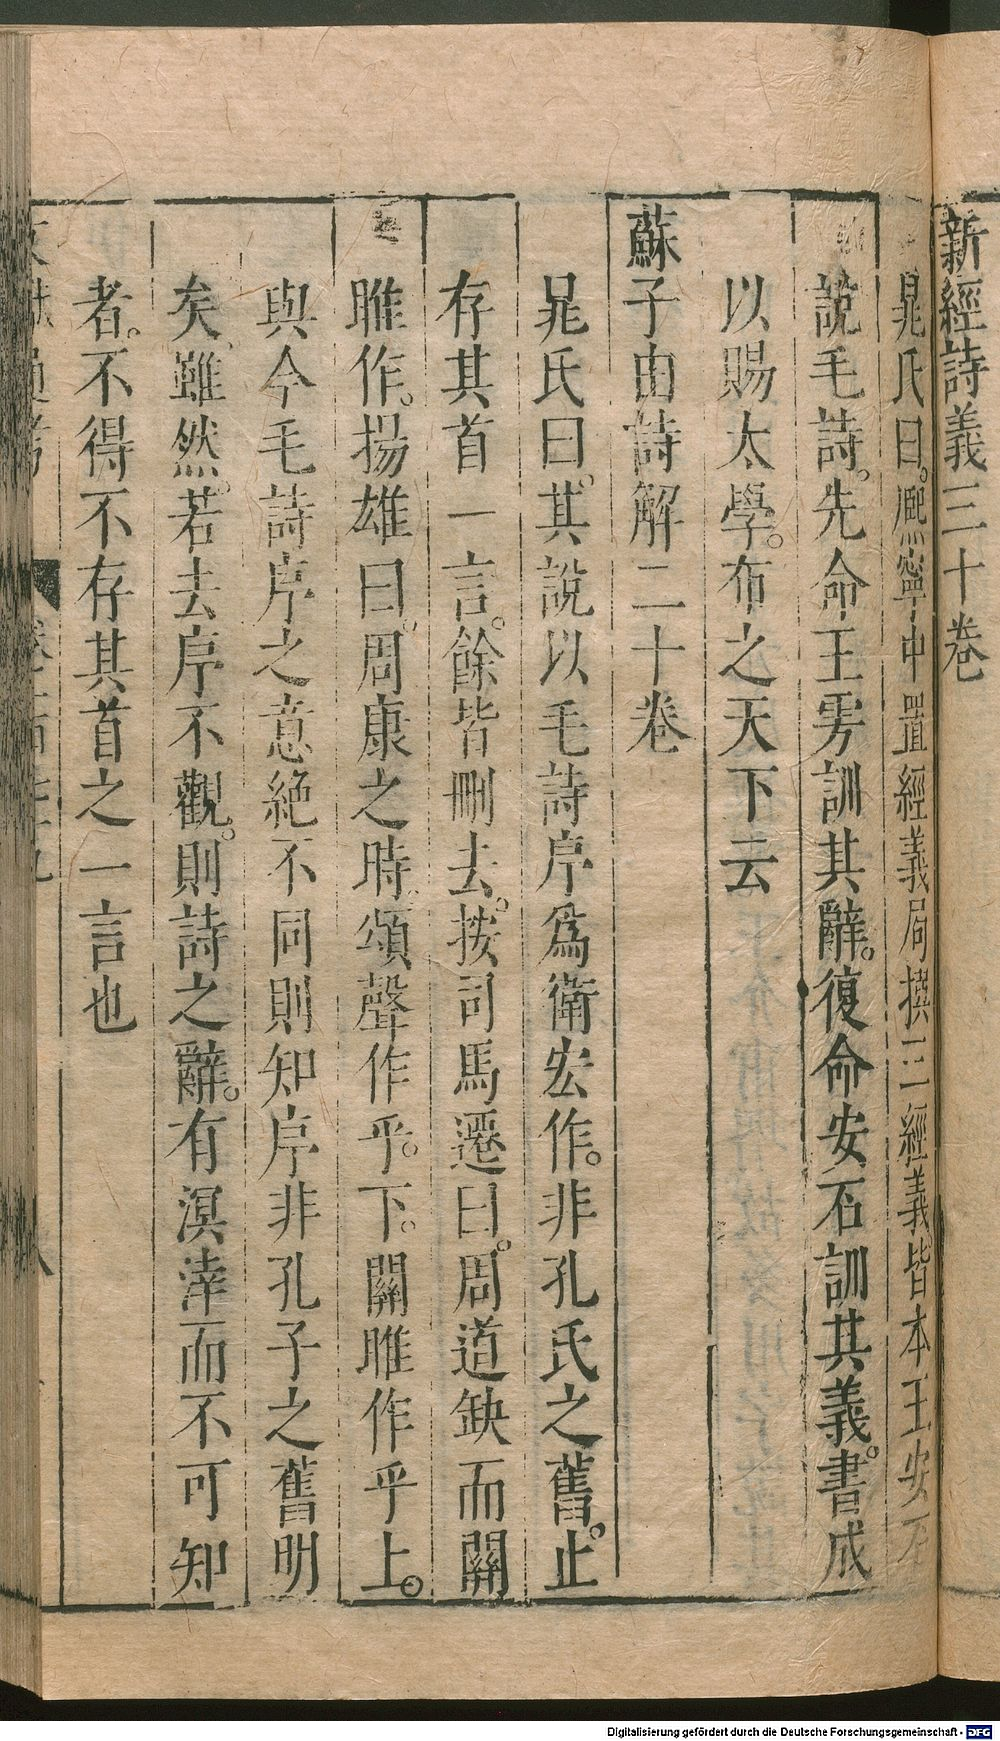 新經詩義三十卷
晁氏曰。熈寧中置經義局撰三經義皆本王安石
說毛詩。先命王雱訓其辭。復命安石訓其義。書成
以賜太學。布之天下云
蘇子由詩解二十卷
晁氏曰。其說以毛詩序爲衛宏作。非孔氏之舊。止
存其首一言。餘皆刪去。按司馬遷曰。周道缺而關
雎作。揚雄曰。周康之時。頌聲作乎。下。關雎作乎上。
與今毛詩序之意絶不同則知序非孔子之舊明
矣。雖然。若去序不觀。則詩之辭。有溟涬而不可知
者。不得不存其首之一言也
Digitalisierung gefördert durch die Deutsche Forschungsgemeinschaft - DFG